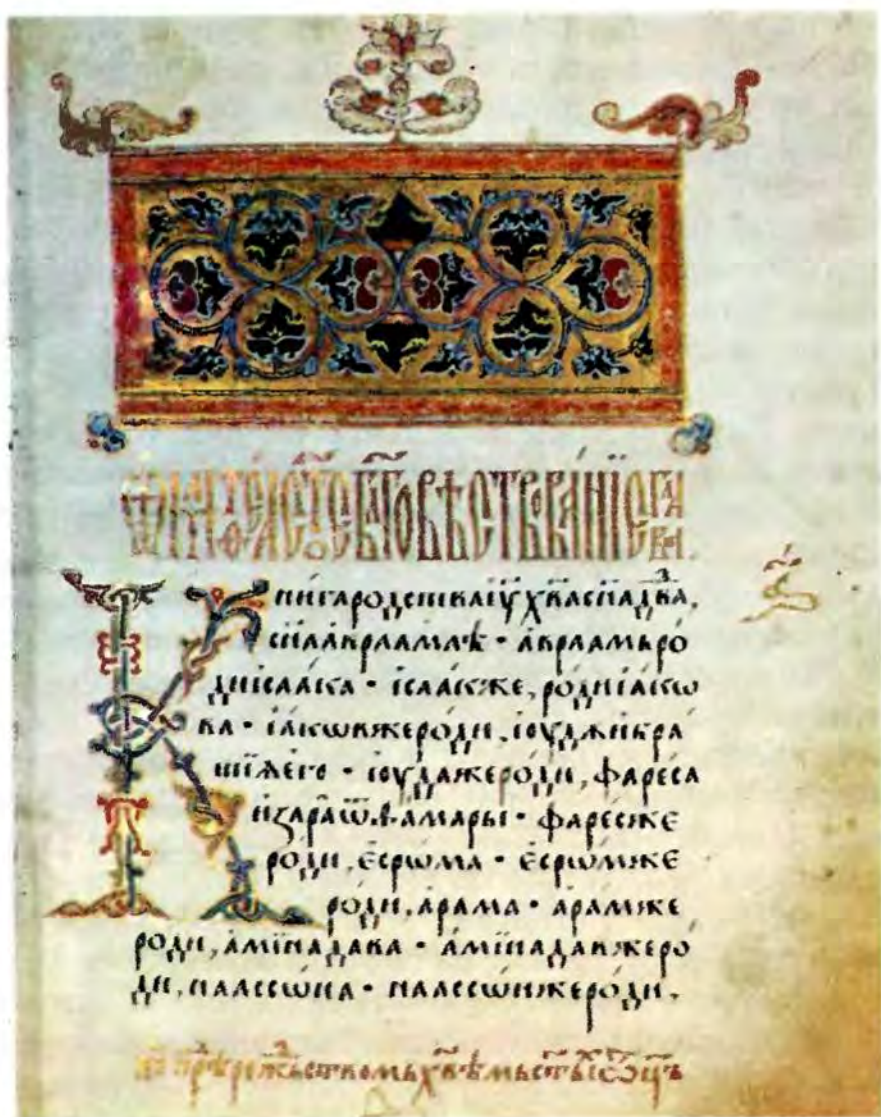 ѿ матѳеа ст҃ое бл҃говѣствованїе гла в҃а
Книгародства іу҃ х҃ва сн҃а дв҃да,
сн҃а авраамлѣ · авраамъ ро
ди ісаака · ісаак же, роди іакѡ
ва · іакѡв же роди, іоудѫ и бра
тїѧ его · іоуда же роди, фареса
и зара ѿ ѳамары · фарес же
роди, есрѡма · есрѡм же
роди, арама · арам же
роди, амїнадава · амїнадав же ро
ди, наассѡна · наассѡн же роди,
пре рж҃ьством х҃вѣмь ст҃ыⷯ ѡ҃ц҃ъ